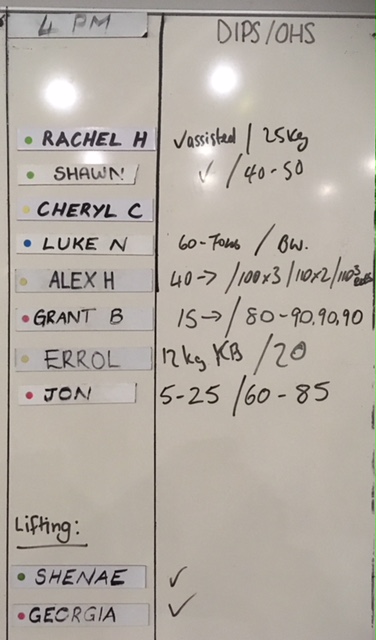 4 PM DIPS/OHS
RACHEL H ✓assisted / 25kg
SHAWN ✓ / 40-50
CHERYL C
LUKE N / BW.
ALEX H 40→ /100x3/110x2/110
GRANT B 15→/ 80-90,90,90
ERROL 12kg KB /20
JON 5-25 /60-85
Lifting:
SHENAE ✓
GEORGIA ✓